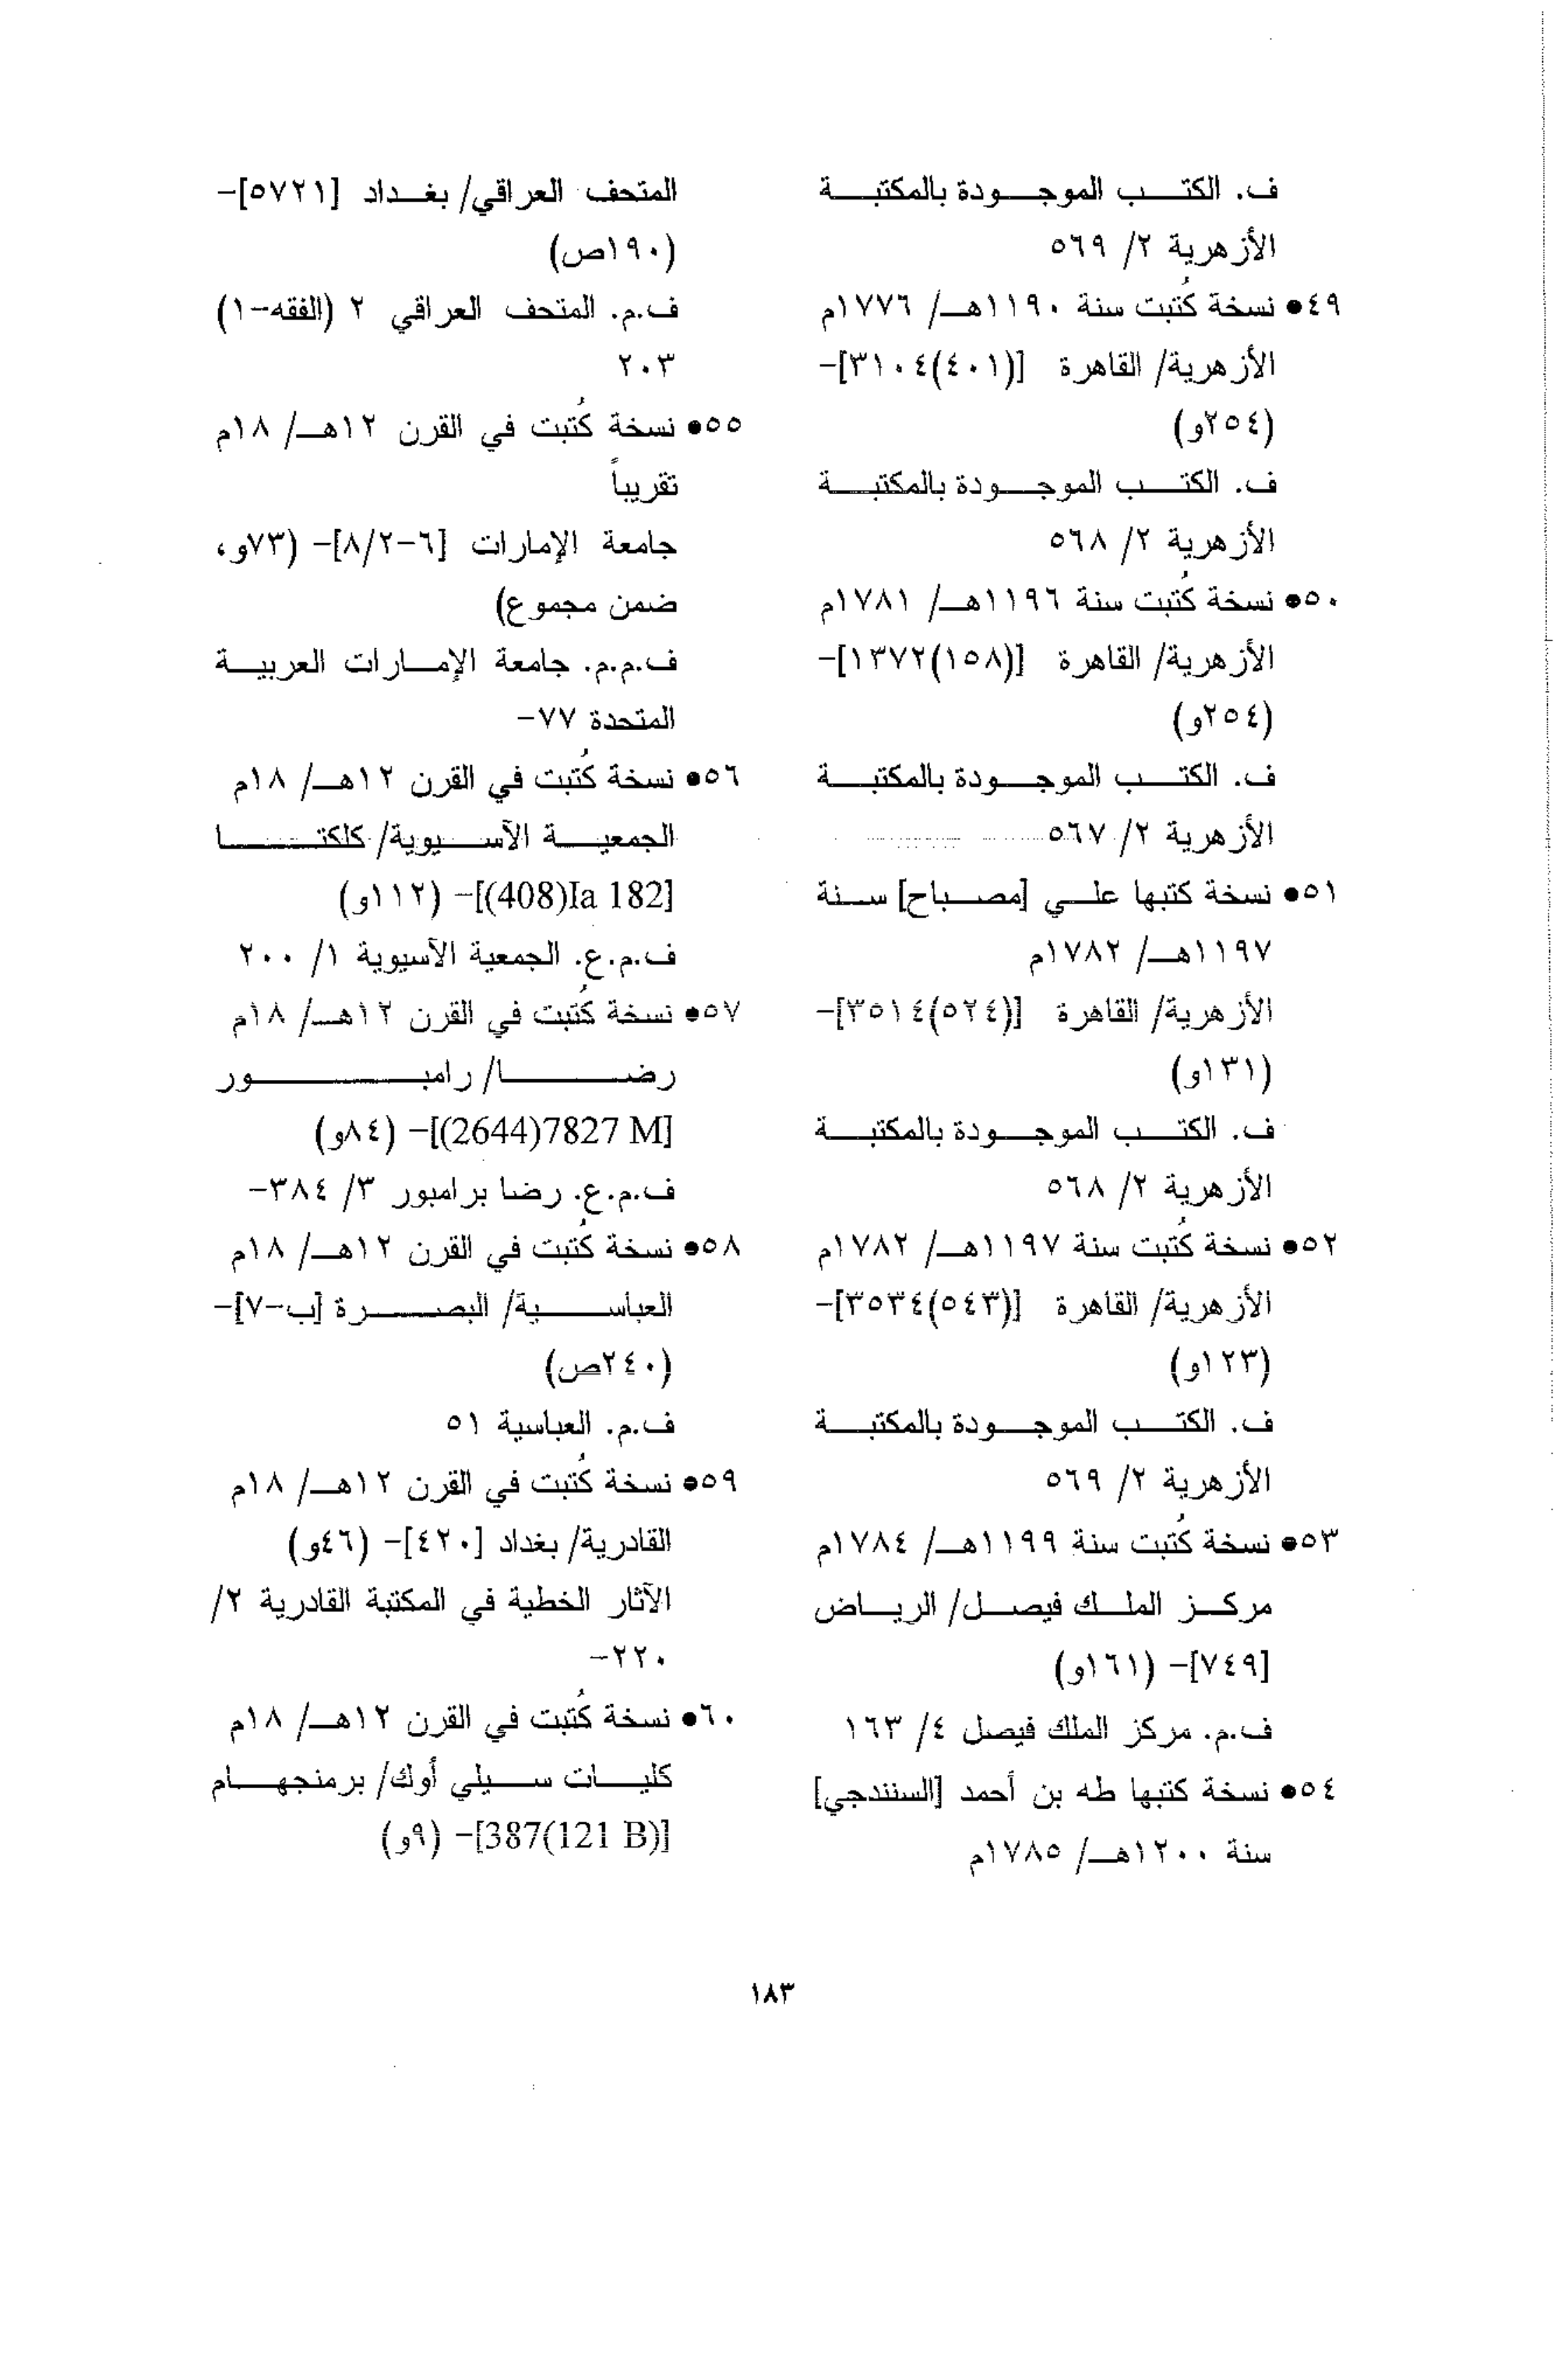 ف. الكتب الموجودة بالمكتبة
الأزهرية ٢/ ٥٦٩
٤٩• نسخة كُتبت سنة ١١٩٠هـ/ ١٧٧٦م
الأزهرية/ القاهرة [(٤٠١)٣١٠٤]-
(٢٥٤و)
ف. الكتب الموجودة بالمكتبة
الأزهرية ٢/ ٥٦٨
٥٠• نسخة كُتبت سنة ١١٩٦هـ/ ١٧٨١م
الأزهرية/ القاهرة [(١٥٨)١٣٧٢]-
(٢٥٤و)
ف. الكتب الموجودة بالمكتبة
الأزهرية ٢/ ٥٦٧
٥١• نسخة كتبها علي [مصباح] سنة
١١٩٧هـ/ ١٧٨٢م
الأزهرية/ القاهرة [(٥٢٤)٣٥١٤]-
(١٣١و)
ف. الكتب الموجودة بالمكتبة
الأزهرية ٢/ ٥٦٨
٥٢• نسخة كُتبت سنة ١١٩٧هـ/ ١٧٨٢م
الأزهرية/ القاهرة [(٥٤٣)٣٥٣٤]-
(١٢٣و)
ف. الكتب الموجودة بالمكتبة
الأزهرية ٢/ ٥٦٩
٥٣• نسخة كُتبت سنة ١١٩٩هـ/ ١٧٨٤م
مركز الملك فيصل/ الرياض
[٧٤٩]- (١٦١و)
ف.م. مركز الملك فيصل ٤/ ١٦٣
٥٤• نسخة كتبها طه بن أحمد [السنندجي]
سنة ١٢٠٠هـ/ ١٧٨٥م
المتحف العراقي/ بغداد [٥٧٢١]-
(١٩٠ص)
ف.م. المتحف العراقي ٢ (الفقه-١)
٢٠٣
٥٥• نسخة كُتبت في القرن ١٢هـ/ ١٨م
تقريباً
جامعة الإمارات [٦-٨/٢]- (٧٣و،
ضمن مجموع)
ف.م.م. جامعة الإمارات العربية
المتحدة ٧٧-
٥٦• نسخة كُتبت في القرن ١٢هـ/ ١٨م
الجمعية الآسيوية/ كلكتا
[(408)Ia 182]- (١١٢و)
ف.م.ع. الجمعية الآسيوية ١/ ٢٠٠
٥٧• نسخة كُتبت في القرن ١٢هـ/ ١٨م
رضا/ رامبور
[(2644)7827 M]- (٨٤و)
ف.م.ع. رضا برامبور ٣/ ٣٨٤-
٥٨• نسخة كُتبت في القرن ١٢هـ/ ١٨م
العباسية/ البصرة [ب-٧]-
(٢٤٠ص)
ف.م. العباسية ٥١
٥٩• نسخة كُتبت في القرن ١٢هـ/ ١٨م
القادرية/ بغداد [٤٢٠]- (٤٦و)
الآثار الخطية في المكتبة القادرية ٢/
٢٢٠-
٦٠• نسخة كُتبت في القرن ١٢هـ/ ١٨م
كليات سيلي أوك/ برمنجهام
[387(121 B)]- (٩و)
١٨٣